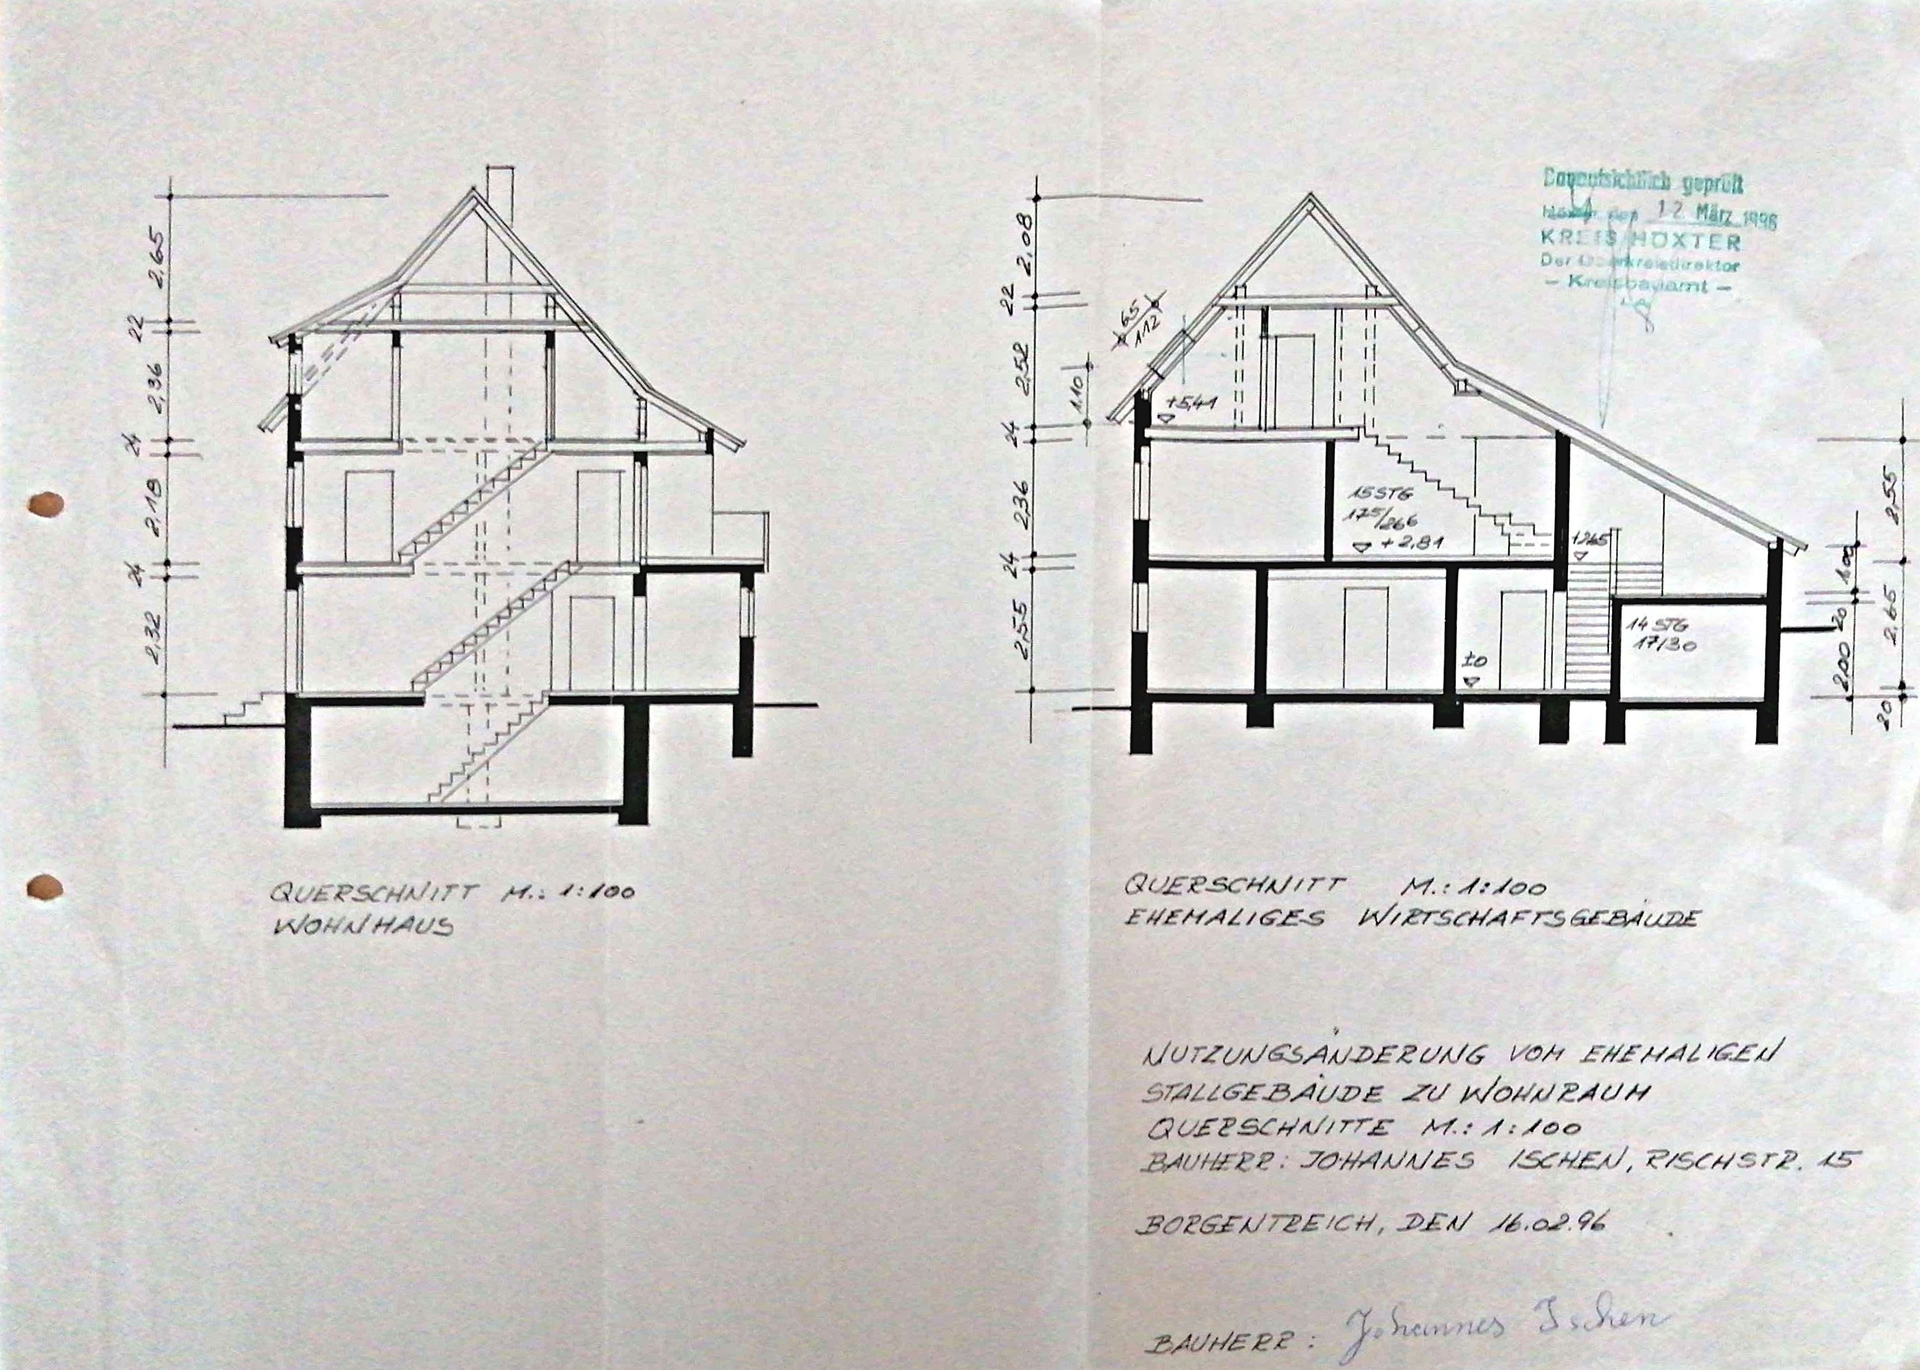 2,65
22
2,36
24
2,18
24
2,32
QUERSCHNITT M.: 1:100
WOHNHAUS
2,08
22
2,52
24
2,36
24
2,55
65
1.12
1.10
+5,41
15 STG
17⁵/266
+2,81
+265
±0
14 STG
17/30
1.00
20
2.00
2,55
2,65
20
Bauaufsichtlich geprüft
Höxter den 12 März 1996
KREIS HÖXTER
Der Oberkreisdirektor
– Kreisbauamt –
QUERSCHNITT M.: 1:100
EHEMALIGES WIRTSCHAFTSGEBÄUDE
NUTZUNGSÄNDERUNG VOM EHEMALIGEN
STALLGEBÄUDE ZU WOHNRAUM
QUERSCHNITTE M.: 1:100
BAUHERR: JOHANNES ISCHEN, RISCHSTR. 15
BORGENTREICH, DEN 16.02.96
BAUHERR: Johannes Ischen